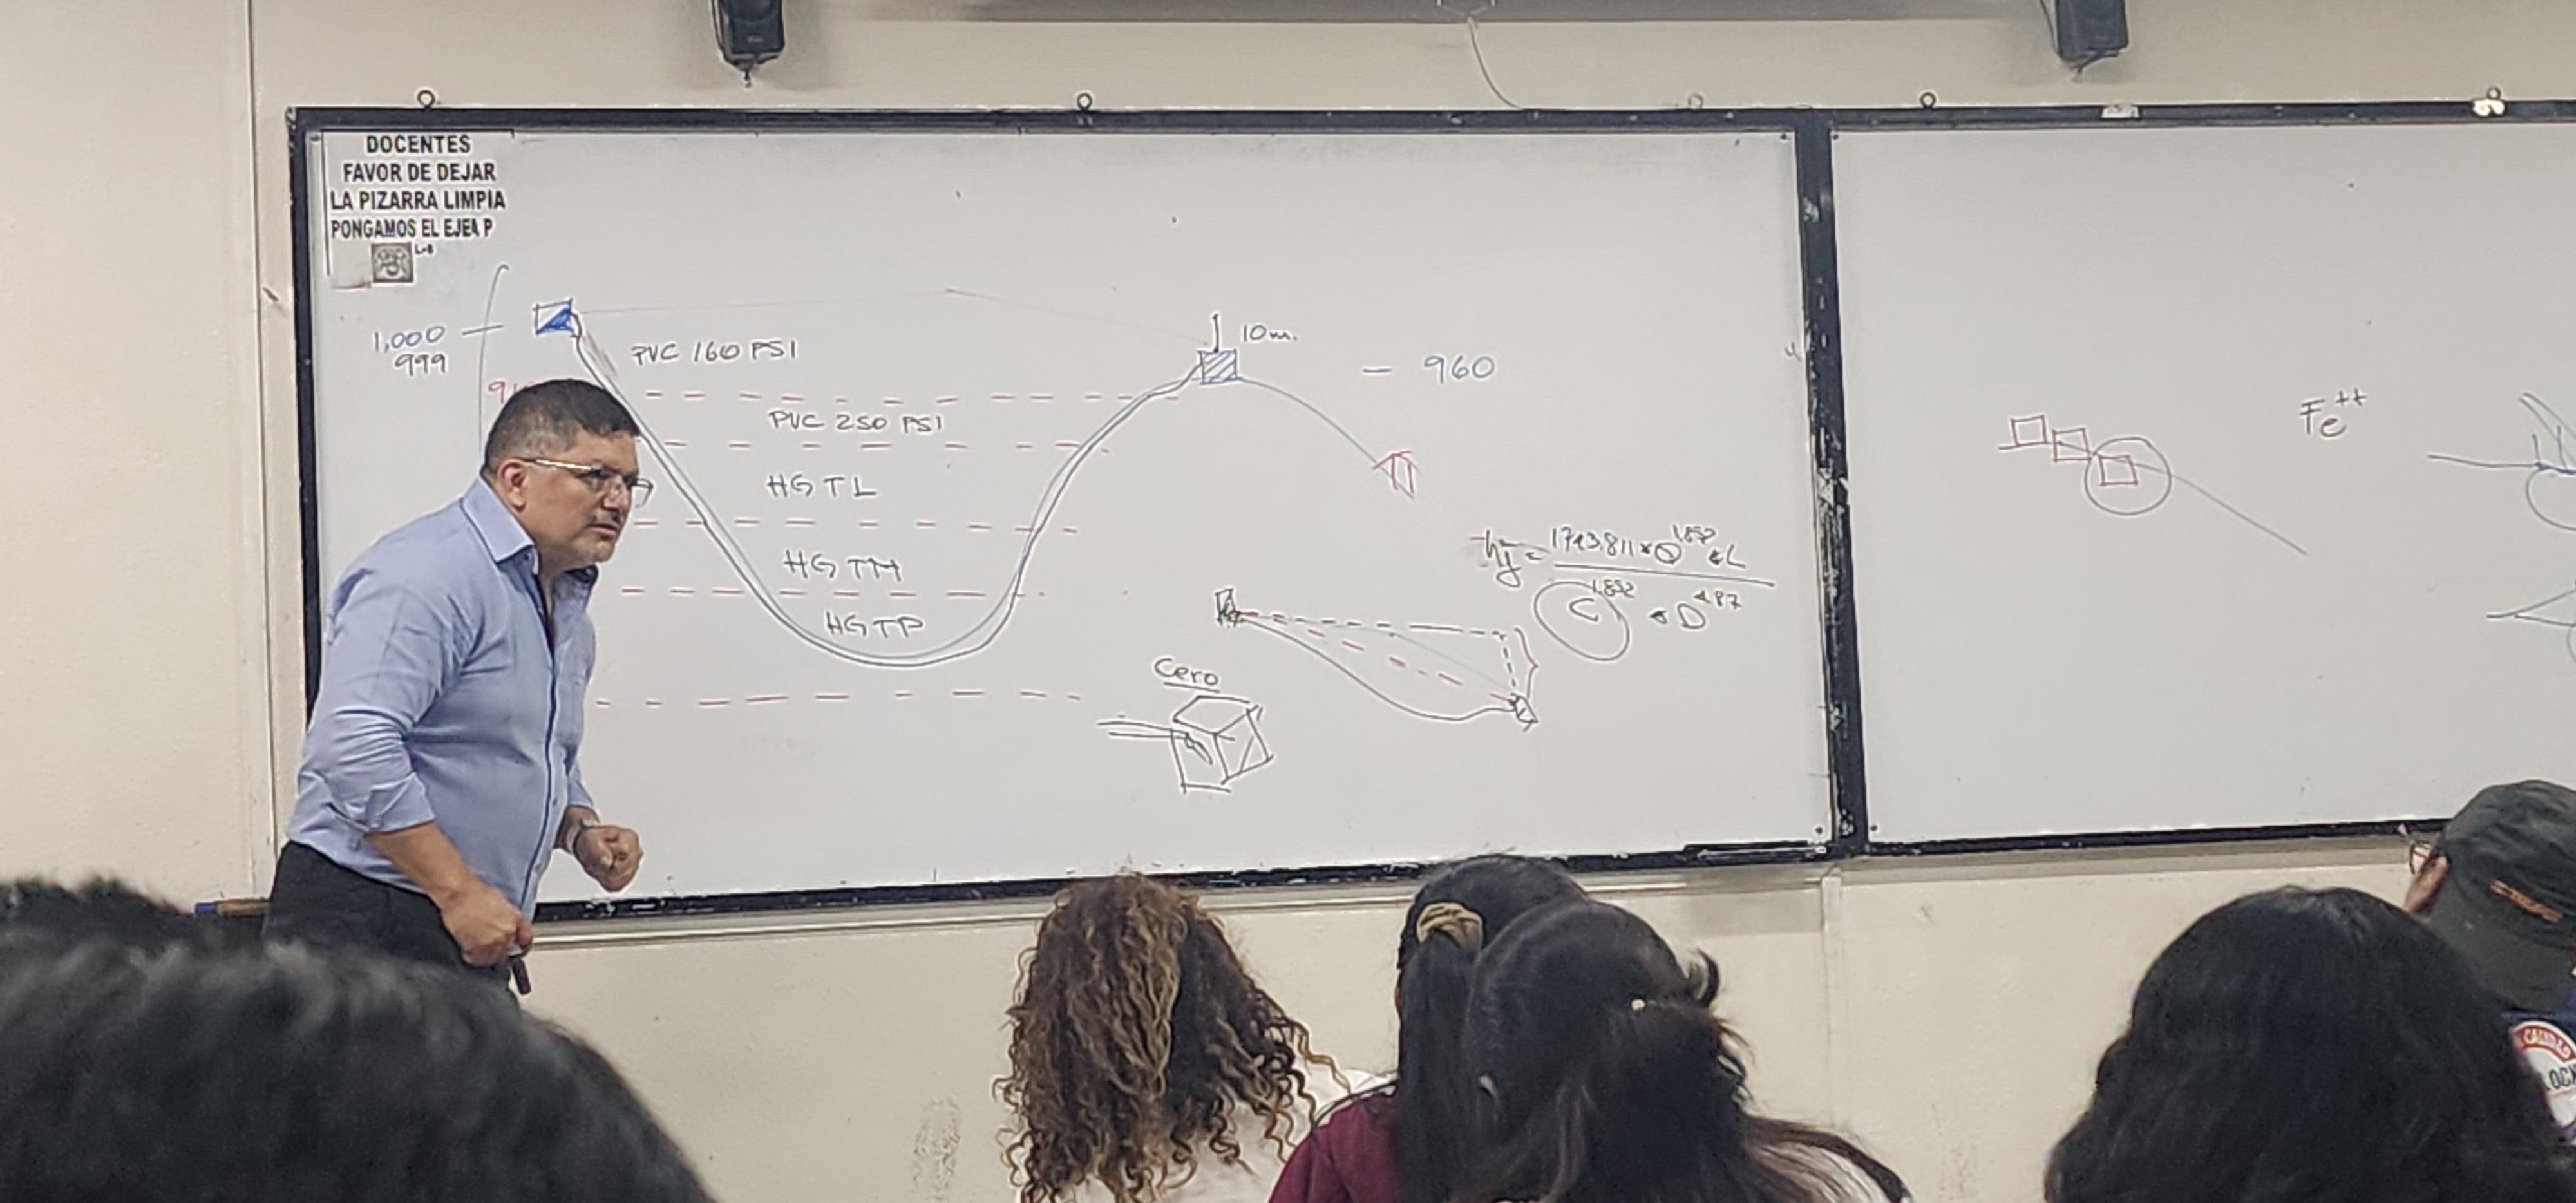 DOCENTES
FAVOR DE DEJAR
LA PIZARRA LIMPIA
PONGAMOS EL EJEM P
L-8
1,000
999
PVC 160 PSI
10m.
960
PVC 250 PSI
HG TL
HG TM
HG TP
Cero
hf = 1743.811 * Q^1.852 * L
C^1.852 * D^4.87
Fe++